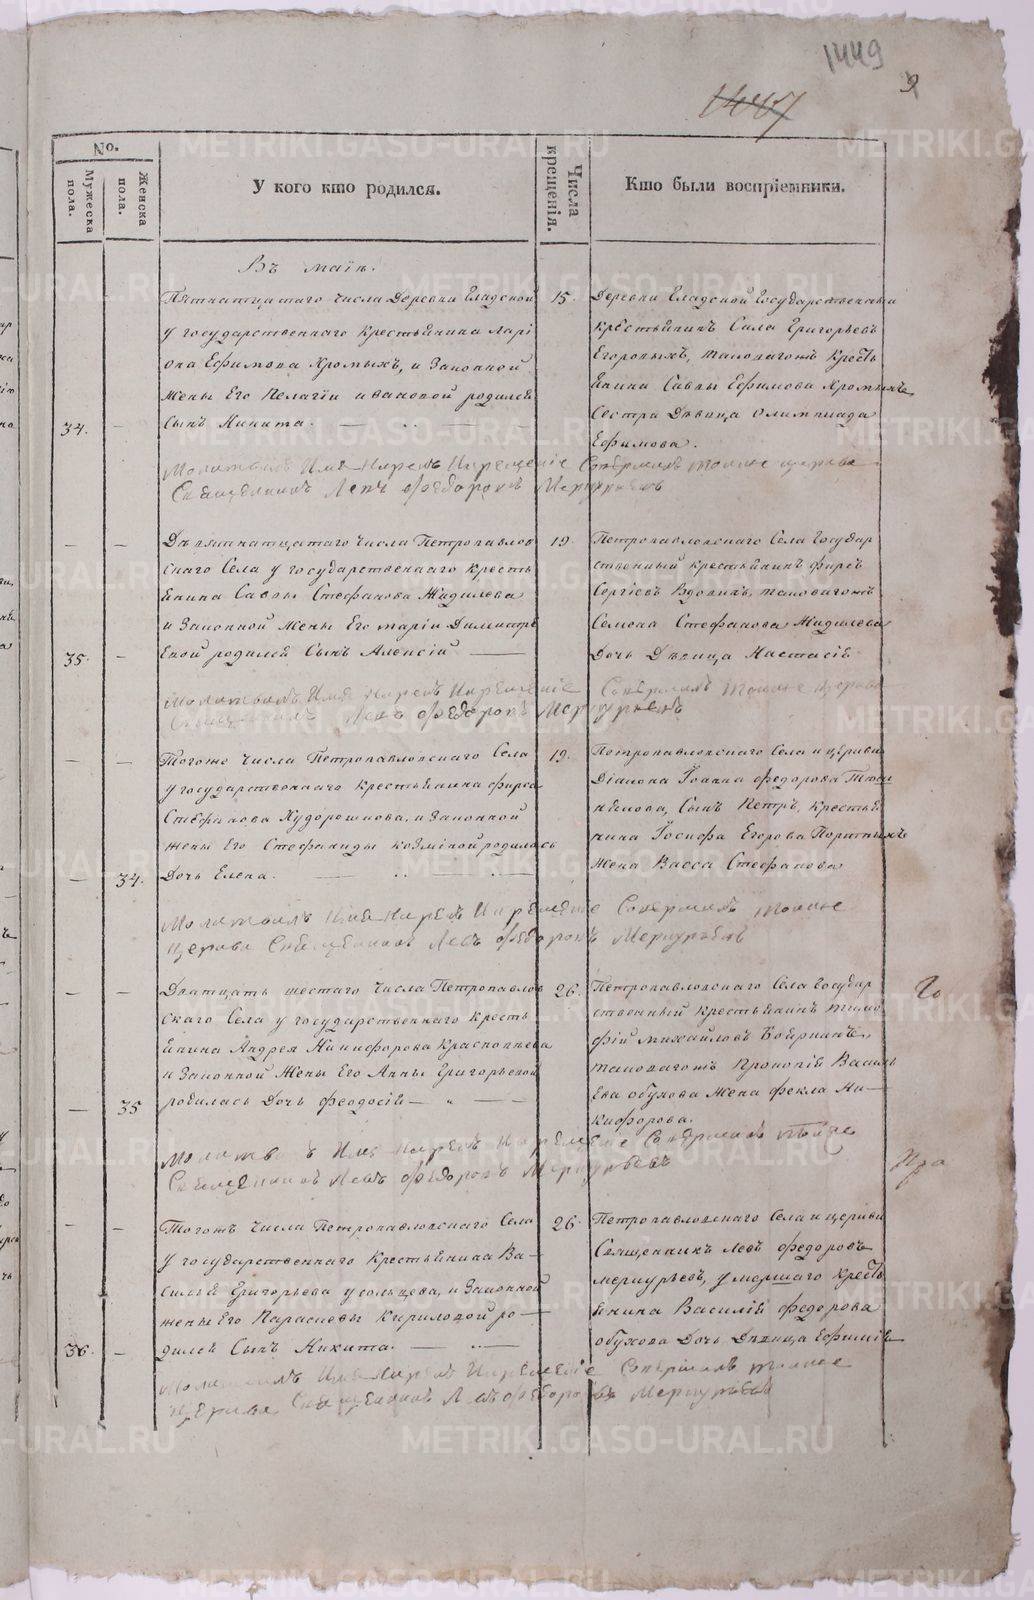 1449
9
1447
№.
Мужеска пола.
Женска пола.
У кого кто родился.
Числа крещенія.
Кто были воспріемники.
Въ маіѣ.
Пятнатцатаго числа Деревни Еладской
у государственнаго крестьянина Лари
она Ефимова Хромыхъ, и законной
жены его Пелагіи Ивановой родился
34. — сынъ Никита.
15.
Деревни Еладской государственный
крестьянинъ Сила Григорьевъ
Егоровыхъ, таковагожъ кресть
янина Савы Ефимова Хромыхъ
сестра дѣвица Олимпиада
Ефимова.
Молитвилъ имя нарекъ и крещеніе совершилъ тоя же церкви
Священникъ Левъ Федоровъ Меркурьевъ
— — Девятнатцатаго числа Петропавлов
скаго села у государственнаго кресть
янина Савы Стефанова Жиделева
и законной жены его Маріи Димитрі
35. — евой родился сынъ Алексій
19.
Петропавловскаго села государ
ственный крестьянинъ Фирсъ
Сергіевъ Вдовинъ, таковагожъ
Семена Стефанова Жиделева
дочь дѣвица Настасія
Молитвилъ имя нарекъ и крещеніе совершилъ тоя же церкви
Священникъ Левъ Федоровъ Меркурьевъ
— — Тогоже числа Петропавловскаго села
у государственнаго крестьянина Фирса
Стефанова Худорошкова, и законной
жены его Стефаниды Козминой родилась
— 34. дочь Елена.
19.
Петропавловскаго села и церкви
діакона Іоанна Федорова
сынъ Петръ, крестья
нина Іосифа Егорова Портныхъ
жена Васса Стефанова
Молитвилъ имя нарекъ и крещеніе совершилъ тоя же
церкви Священникъ Левъ Федоровъ Меркурьевъ
— — Дватцать шестаго числа Петропавлов
скаго села у государственнаго кресть
янина Андрея Никифорова Красноплева
и законной жены его Анны Григорьевой
— 35 родилась дочь Феодосія
26.
Петропавловскаго села государ
ственный крестьянинъ Тимо
фій Михайловъ Бояркинъ,
таковагожъ Прокопія Василь
ева Обухова жена Фекла Ни—
кифорова.
Молитвилъ имя нарекъ и крещеніе совершилъ тоя же
Священникъ Левъ Федоровъ Меркурьевъ
— — Тогожъ числа Петропавловскаго села
у государственнаго крестьянина Ва—
силья Григорьева Усольцева, и законной
жены его Парасковы Кириловой ро—
36. — дился сынъ Никита.
26.
Петропавловскаго села и церкви
Священникъ Левъ Федоровъ
Меркурьевъ, умершаго кресть
янина Василія Федорова
Обухова дочь дѣвица Ефимія
Молитвилъ имя нарекъ и крещеніе совершилъ тоя же
церкви Священникъ Левъ Федоровъ Меркурьевъ
METRIKI.GASO-URAL.RU